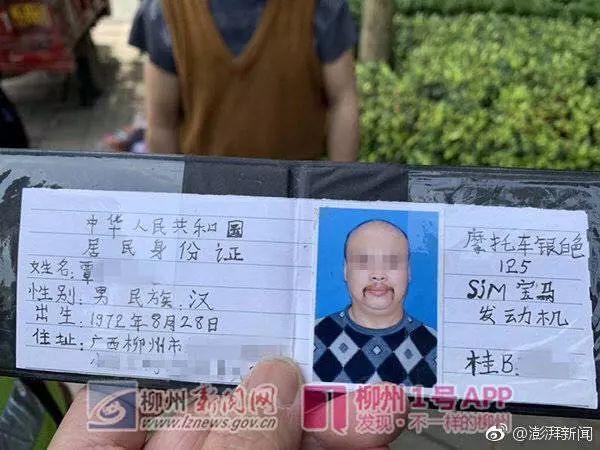 中华人民共和国
居民身份证
姓名:覃
性别:男 民族:汉
出生:1972年8月28日
住址:广西柳州市
摩托车银色
125
SiM 宝马
发动机
桂B.
柳州新闻网
www.lznews.gov.cn
柳州1号APP
发现·不一样的柳州
@澎湃新闻